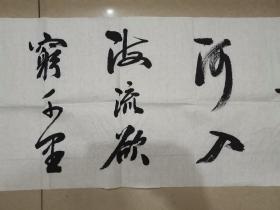 河入
海流欲
窮千里